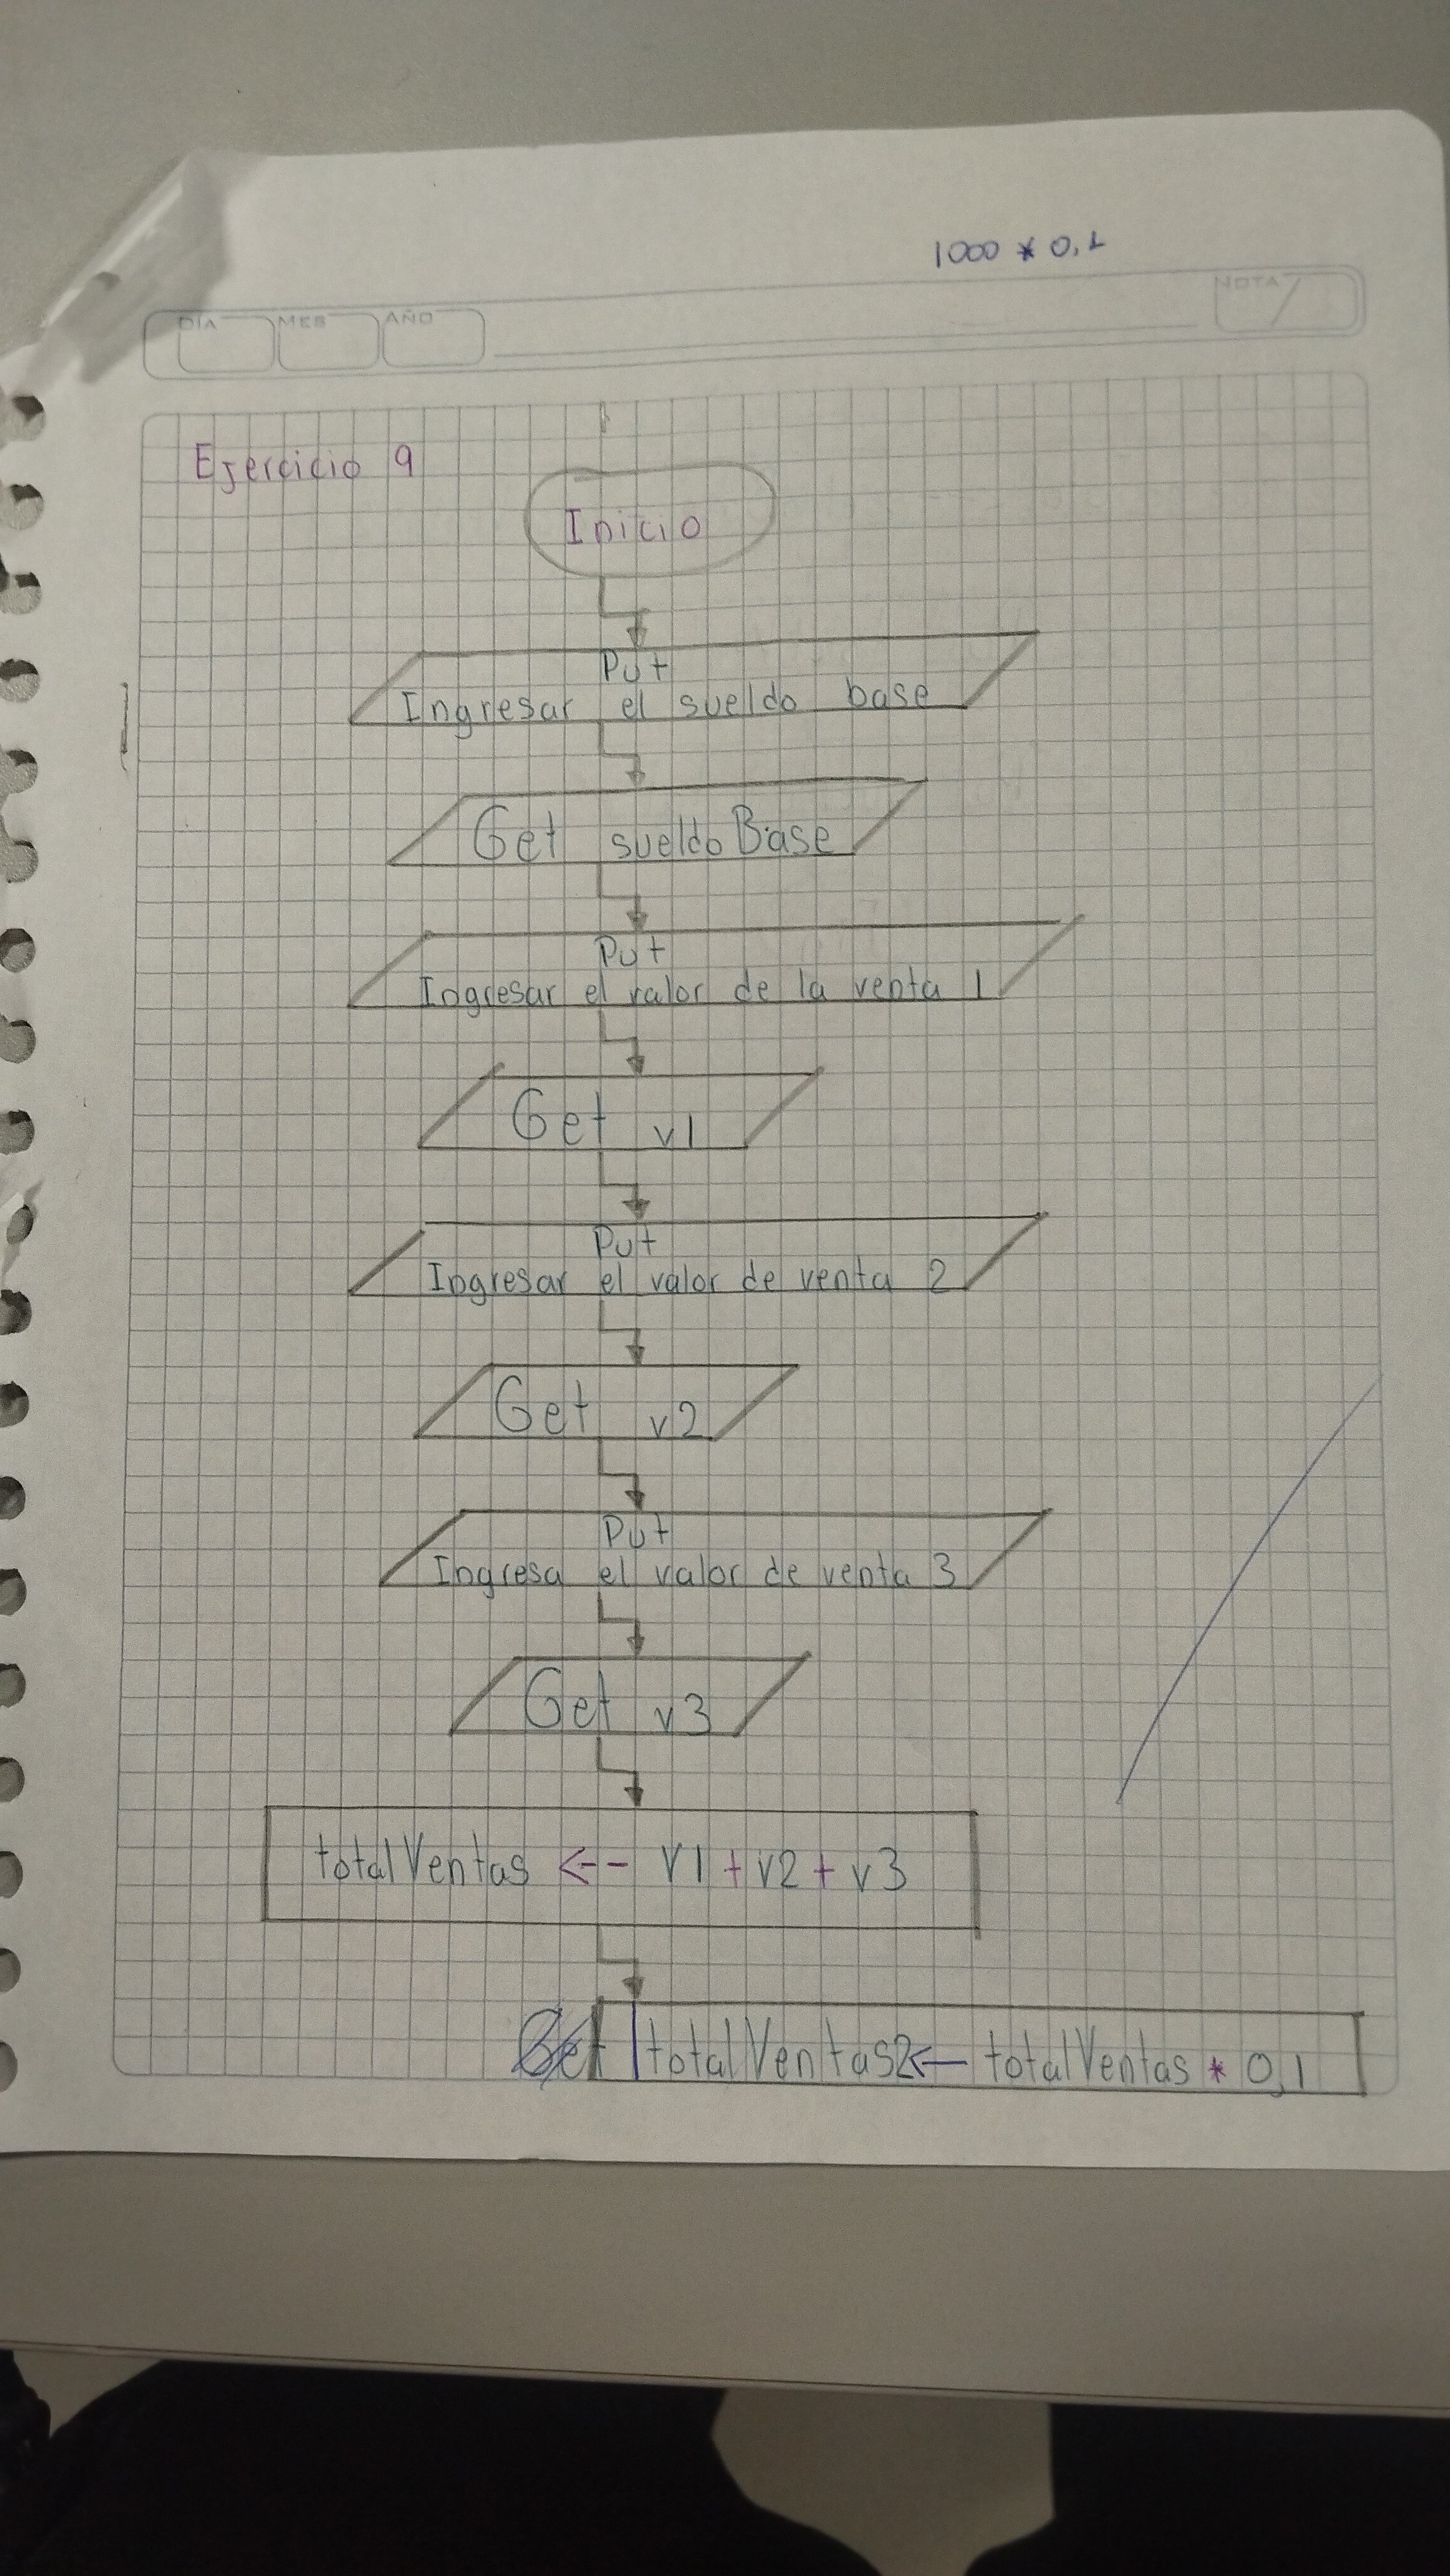 1000 * 0,1
NOTA
DÍA MES AÑO
Ejercicio 9
Inicio
Put
Ingresar el sueldo base
Get sueldoBase
Put
Ingresar el valor de la venta 1
Get v1
Put
Ingresar el valor de venta 2
Get v2
Put
Ingresa el valor de venta 3
Get v3
totalVentas <-- V1 + v2 + v3
totalVentas2<— totalVentas * 0,1